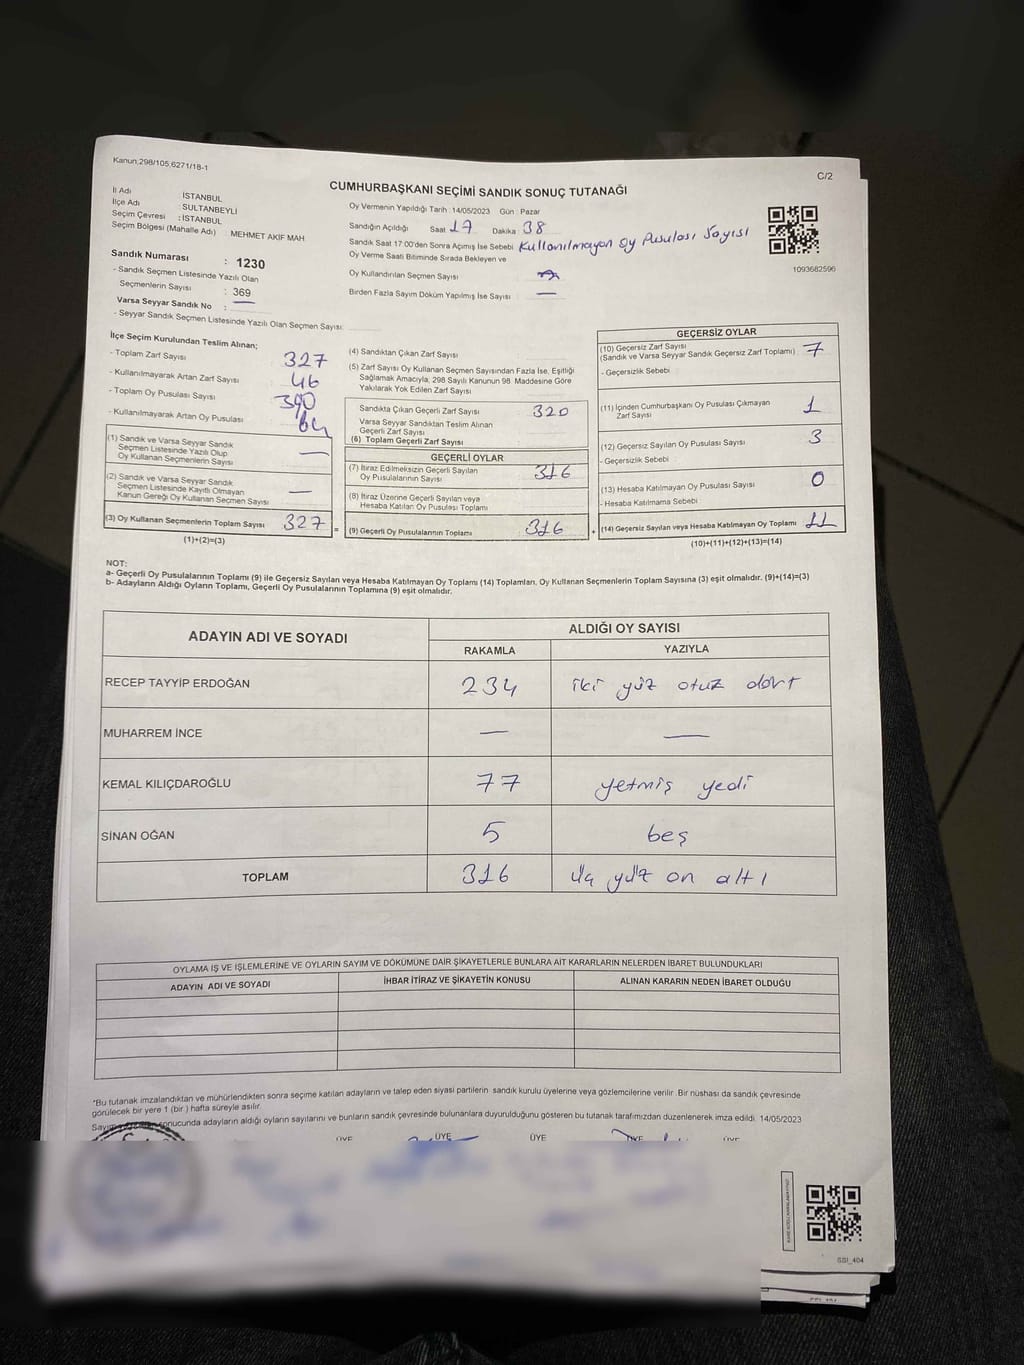 Kanun:298/105,6271/18-1
C/2
CUMHURBAŞKANI SEÇİMİ SANDIK SONUÇ TUTANAĞI
İl Adı : İSTANBUL
İlçe Adı : SULTANBEYLİ
Seçim Çevresi : İSTANBUL
Seçim Bölgesi (Mahalle Adı) : MEHMET AKİF MAH
Oy Vermenin Yapıldığı Tarih : 14/05/2023 Gün : Pazar
Sandığın Açıldığı Saat 17 Dakika 38
Sandık Saat 17:00'den Sonra Açılmış İse Sebebi Kullanılmayan Oy Pusulası Sayısı
Oy Verme Saati Bitiminde Sırada Bekleyen ve
Oy Kullandırılan Seçmen Sayısı
Birden Fazla Sayım Döküm Yapılmış İse Sayısı : —
1093682596
Sandık Numarası : 1230
- Sandık Seçmen Listesinde Yazılı Olan
Seçmenlerin Sayısı : 369
Varsa Seyyar Sandık No : —
- Seyyar Sandık Seçmen Listesinde Yazılı Olan Seçmen Sayısı:
İlçe Seçim Kurulundan Teslim Alınan;
- Toplam Zarf Sayısı 327
- Kullanılmayarak Artan Zarf Sayısı 46
- Toplam Oy Pusulası Sayısı 390
- Kullanılmayarak Artan Oy Pusulası 64
(1) Sandık ve Varsa Seyyar Sandık
Seçmen Listesinde Yazılı Olup
Oy Kullanan Seçmenlerin Sayısı —
(2) Sandık ve Varsa Seyyar Sandık
Seçmen Listesinde Kayıtlı Olmayan
Kanun Gereği Oy Kullanan Seçmen Sayısı —
(3) Oy Kullanan Seçmenlerin Toplam Sayısı 327 =
(1)+(2)=(3)
(4) Sandıktan Çıkan Zarf Sayısı
(5) Zarf Sayısı Oy Kullanan Seçmen Sayısından Fazla İse, Eşitliği
Sağlamak Amacıyla, 298 Sayılı Kanunun 98. Maddesine Göre
Yakılarak Yok Edilen Zarf Sayısı
Sandıkta Çıkan Geçerli Zarf Sayısı 320
Varsa Seyyar Sandıktan Teslim Alınan
Geçerli Zarf Sayısı
(6) Toplam Geçerli Zarf Sayısı
GEÇERLİ OYLAR
(7) İtiraz Edilmeksizin Geçerli Sayılan
Oy Pusulalarının Sayısı 316
(8) İtiraz Üzerine Geçerli Sayılan veya
Hesaba Katılan Oy Pusulası Toplamı
(9) Geçerli Oy Pusulalarının Toplamı 316 +
GEÇERSİZ OYLAR
(10) Geçersiz Zarf Sayısı
(Sandık ve Varsa Seyyar Sandık Geçersiz Zarf Toplamı) 7
- Geçersizlik Sebebi
(11) İçinden Cumhurbaşkanı Oy Pusulası Çıkmayan
Zarf Sayısı 1
(12) Geçersiz Sayılan Oy Pusulası Sayısı 3
- Geçersizlik Sebebi
(13) Hesaba Katılmayan Oy Pusulası Sayısı 0
- Hesaba Katılmama Sebebi
(14) Geçersiz Sayılan veya Hesaba Katılmayan Oy Toplamı 11
(10)+(11)+(12)+(13)=(14)
NOT:
a- Geçerli Oy Pusulalarının Toplamı (9) ile Geçersiz Sayılan veya Hesaba Katılmayan Oy Toplamı (14) Toplamları, Oy Kullanan Seçmenlerin Toplam Sayısına (3) eşit olmalıdır. (9)+(14)=(3)
b- Adayların Aldığı Oyların Toplamı, Geçerli Oy Pusulalarının Toplamına (9) eşit olmalıdır.
ADAYIN ADI VE SOYADI ALDIĞI OY SAYISI
RAKAMLA YAZIYLA
RECEP TAYYİP ERDOĞAN 234 iki yüz otuz dört
MUHARREM İNCE — —
KEMAL KILIÇDAROĞLU 77 yetmiş yedi
SİNAN OĞAN 5 beş
TOPLAM 316 üç yüz on altı
OYLAMA İŞ VE İŞLEMLERİNE VE OYLARIN SAYIM VE DÖKÜMÜNE DAİR ŞİKAYETLERLE BUNLARA AİT KARARLARIN NELERDEN İBARET BULUNDUKLARI
ADAYIN ADI VE SOYADI İHBAR İTİRAZ VE ŞİKAYETİN KONUSU ALINAN KARARIN NEDEN İBARET OLDUĞU
*Bu tutanak imzalandıktan ve mühürlendikten sonra seçime katılan adayların ve talep eden siyasi partilerin sandık kurulu üyelerine veya gözlemcilerine verilir. Bir nüshası da sandık çevresinde
görülecek bir yere 1 (bir) hafta süreyle asılır.
sonucunda adayların aldığı oyların sayılarını ve bunların sandık çevresinde bulunanlara duyurulduğunu gösteren bu tutanak tarafımızdan düzenlenerek imza edildi. 14/05/2023
ÜYE ÜYE ÜYE ÜYE ÜYE
SSI_404